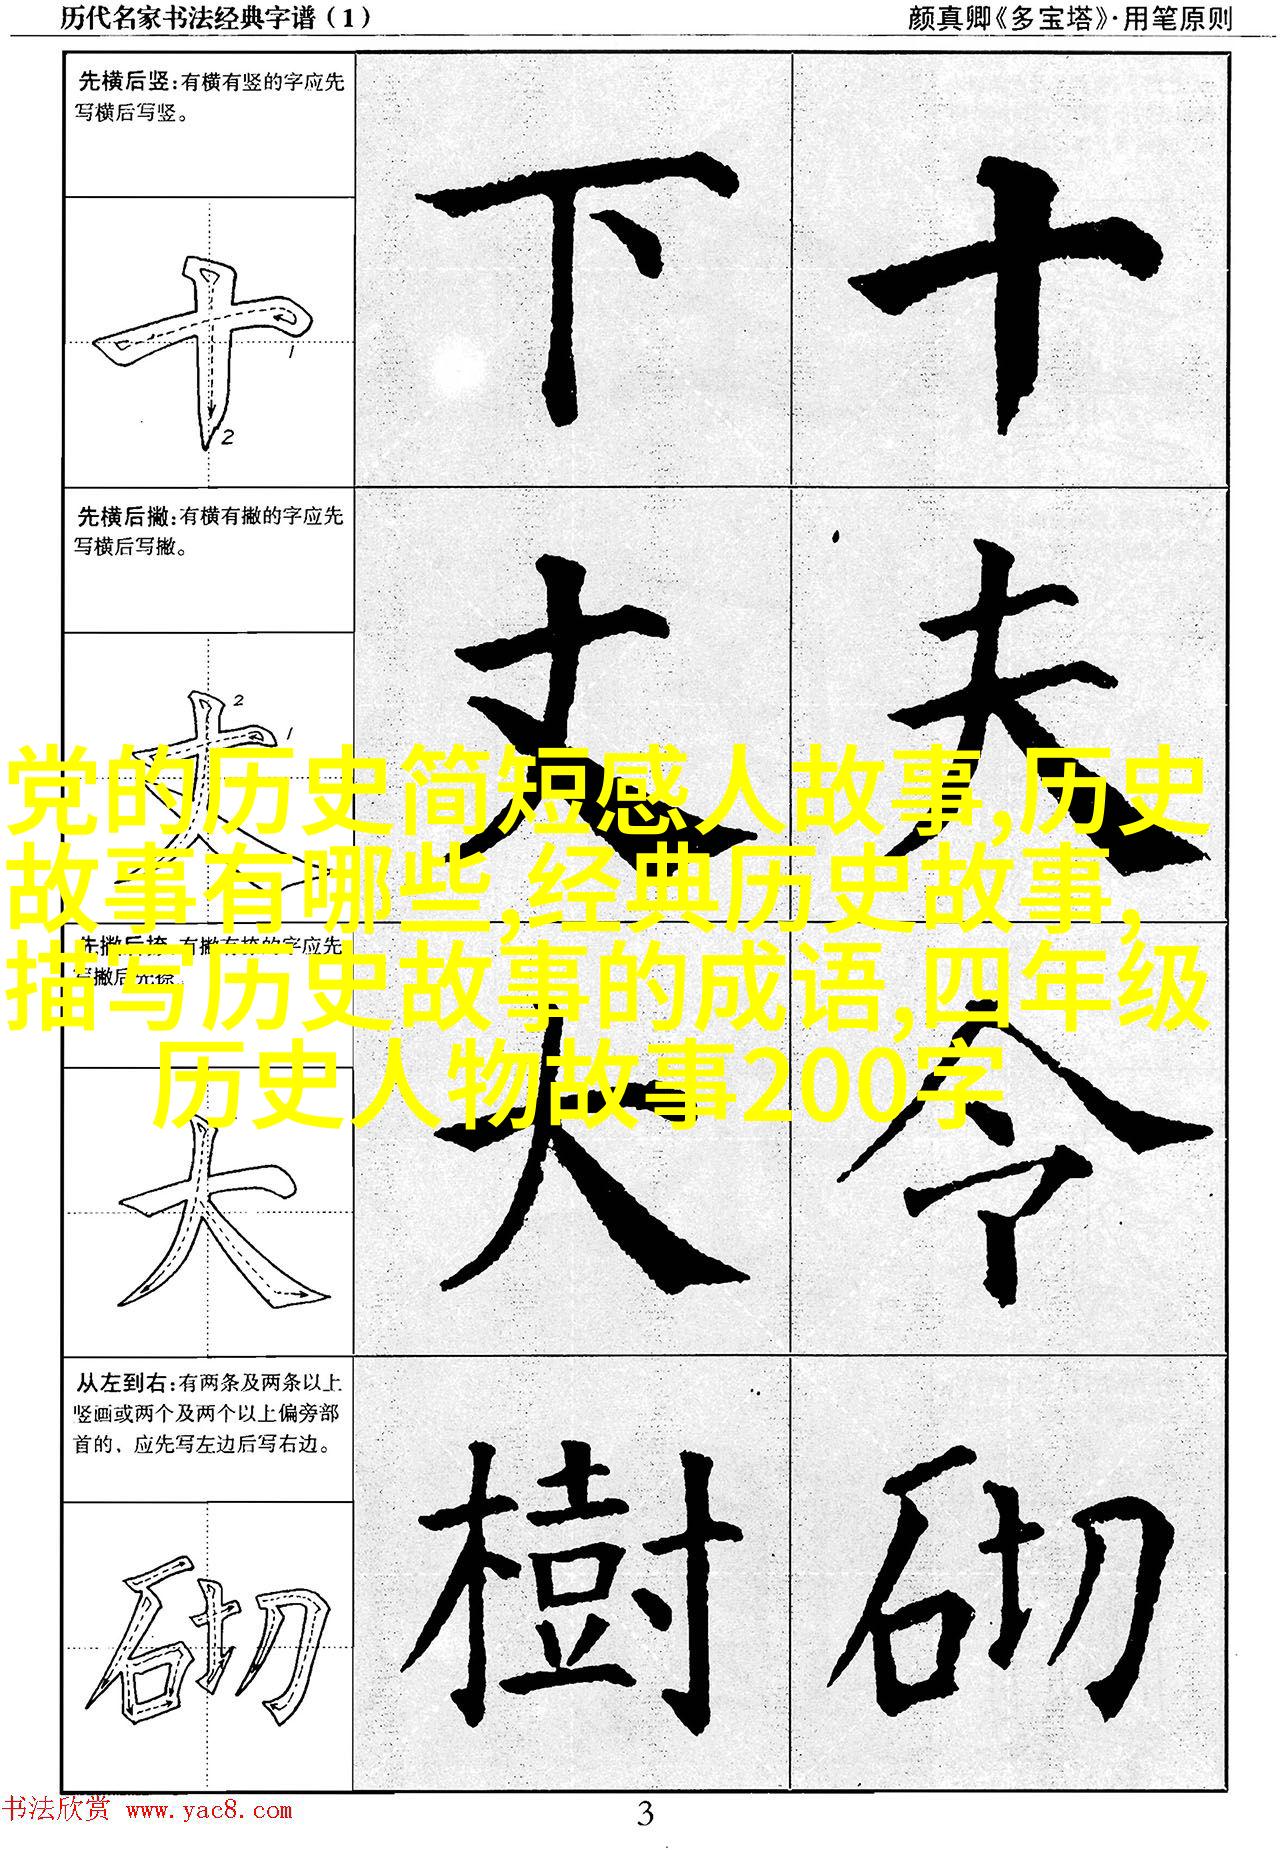 历代名家书法经典字谱(1)
颜真卿《多宝塔》·用笔原则
先横后竖:有横有竖的字应先
写横后写竖。
下
十
十
1
2
先横后撇:有横有撇的字应先
写横后写撇。
丈
夫
2
1
党的历史简短感人故事,历史
故事有哪些,经典历史故事,
描写历史故事的成语,四年级
历史人物故事200字
先撇后捺:有撇有捺的字应先
写撇后先捺。
大
令
大
从左到右:有两条及两条以上
竖画或两个及两个以上偏旁部
首的,应先写左边后写右边。
樹
砌
砌
书法欣赏 www.yac8.com
3